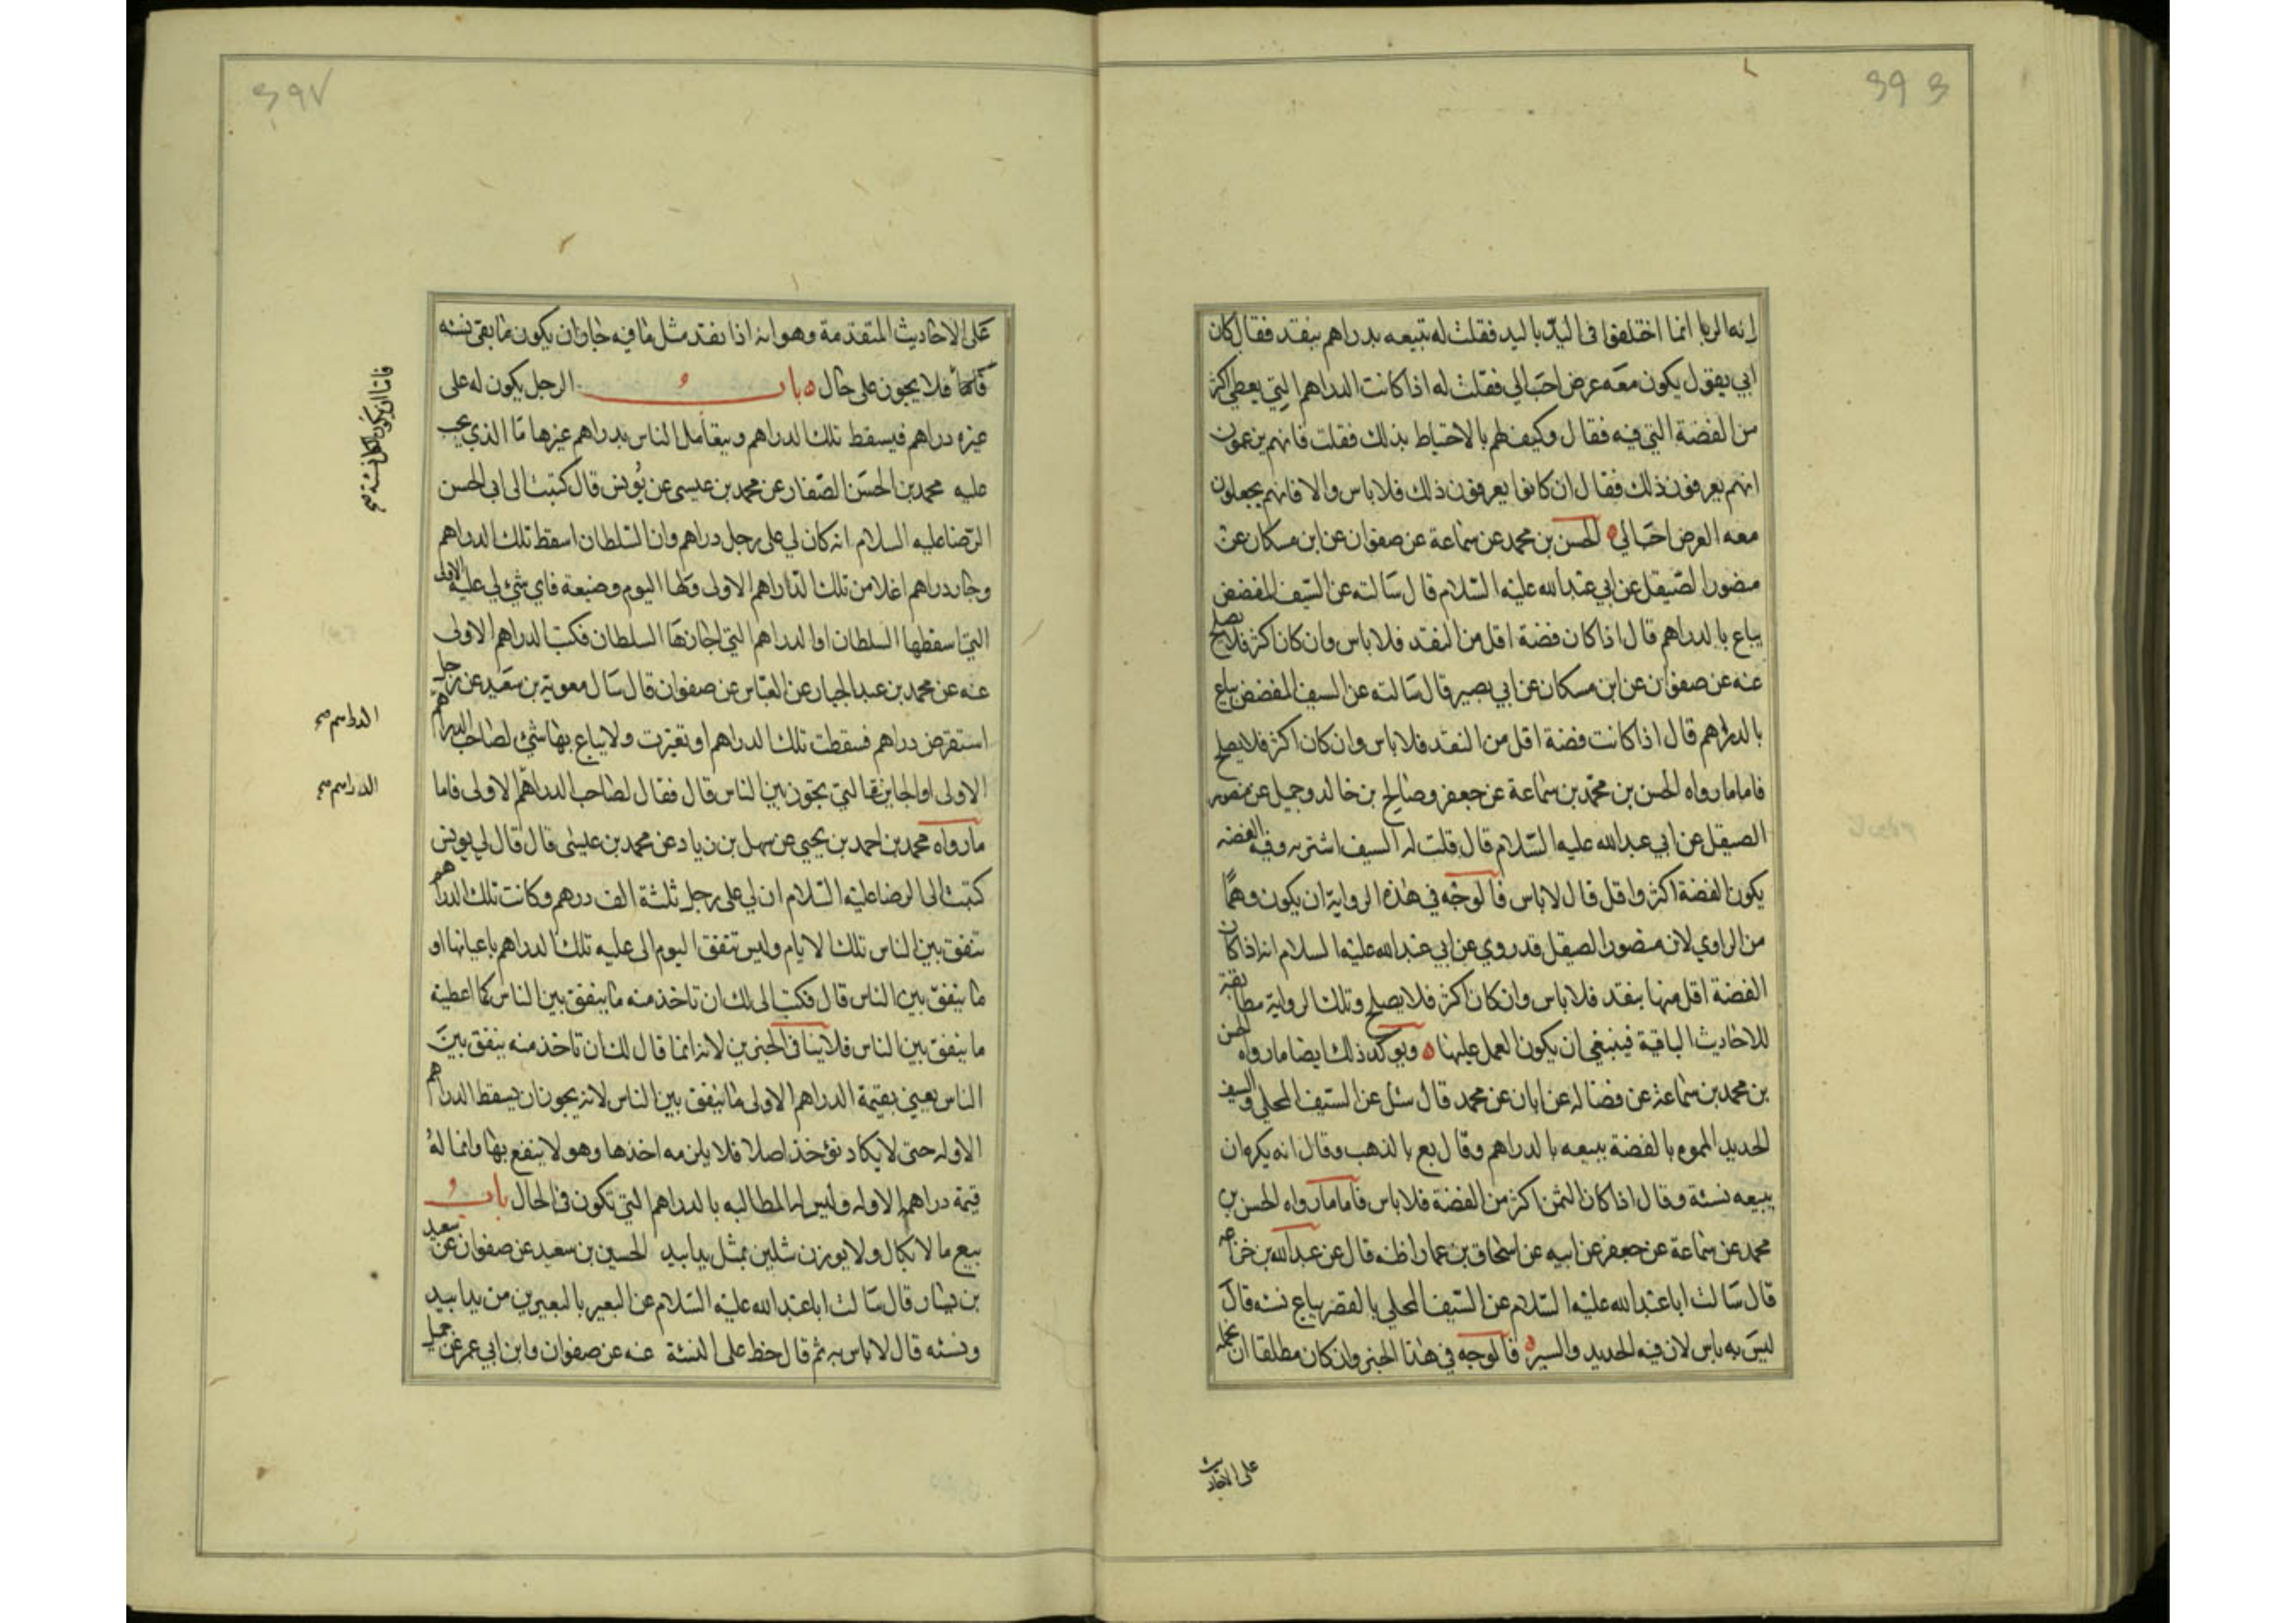 انه الربا انما اختلفوا في اليد باليد فقلت له تبيعه بدراهم بنقد فقال كان
ابي يقول يكون معه عرض احب الي فقلت له اذا كانت الدراهم التي يعطي اكثر
من الفضة التي فيه فقال وكيف لهم بالاحتياط بذلك فقلت فانهم يزعمون
انهم يعرفون ذلك فقال ان كانوا يعرفون ذلك فلا باس والا فانهم يجعلون
معه العرض احب الي الحسن بن محمد عن سماعة عن صفوان عن ابن مسكان عن
منصور الصيقل عن ابي عبد الله عليه السلام قال سالته عن السيف المفضض
يباع بالدراهم قال اذا كان فضة اقل من النقد فلا باس وان كان اكثر فلا يصلح
عنه عن صفوان عن ابن مسكان عن ابي بصير قال سالته عن السيف المفضض يباع
بالدراهم قال اذا كانت فضة اقل من النقد فلا باس وان كان اكثر فلا يصلح
فاما ما رواه الحسن بن محمد بن سماعة عن جعفر وصالح بن خالد وجميل عن منصور
الصيقل عن ابي عبد الله عليه السلام قال قلت له السيف اشتريه وفيه الفضه
يكون الفضة اكثر واقل قال لا باس فالوجه في هذه الرواية ان يكون وهما
من الراوي لان منصور الصيقل قد روي عن ابي عبد الله عليه السلام انه اذا كان
الفضة اقل منها بنقد فلا باس وان كان اكثر فلا يصلح وتلك الرواية مطابقة
للاحاديث الباقية فينبغي ان يكون العمل عليها ويوكد ذلك ايضا ما رواه الحسن
بن محمد بن سماعة عن فضاله عن ابان عن محمد قال سئل عن السيف المحلي والسيف
الحديد المموه بالفضة يبيعه بالدراهم وقال بع بالذهب وقال انه يكره ان
يبيعه نسئة وقال اذا كان الثمن اكثر من الفضة فلا باس فاما ما رواه الحسن بن
محمد عن سماعة عن جعفر عن ابيه عن اسحاق بن عمار اظنه قال عن عبد الله بن
قال سالت ابا عبد الله عليه السلام عن السيف المحلي بالفضه يباع نسئه قال
ليس به باس لان فيه الحديد والسير فالوجه في هذا الخبر وان كان مطلقا ان نحمله
على الاحاديث
على الاحاديث المتقدمة وهو انه اذا نقد مثل ما فيه جاز ان يكون ما بقي نسئه
فلا يجوز على حال باب الرجل يكون له على
غيره دراهم فيسقط تلك الدراهم ويتعامل الناس بدراهم غيرها ما الذي يجب
عليه محمد بن الحسن الصفار عن محمد بن عيسى عن يونس قال كتبت الى ابي الحسن
الرضا عليه السلام انه كان لي على رجل دراهم وان السلطان اسقط تلك الدراهم
وجاء دراهم اغلا من تلك الدراهم الاولى ولها اليوم وضيعة فاي شئ لي عليه الاولى
التي اسقطها السلطان او الدراهم التي اجازها السلطان فكتب الدراهم الاولى
عنه عن محمد بن عبد الجبار عن العباس عن صفوان قال سال معوية بن سعيد عن رجل
استقرض دراهم فسقطت تلك الدراهم او تغيرت ولا يباع بها شئ لصاحب الدراهم
الاولى او الجايزة التي تجوز بين الناس قال فقال لصاحب الدراهم الاولى فاما
ما رواه محمد بن احمد بن يحيي عن سهل بن زياد عن محمد بن عيسى قال قال لي يونس
كتبت الى الرضا عليه السلام ان لي على رجل ثلثة الف درهم وكانت تلك الدراهم
تنفق بين الناس تلك الايام وليس تنفق اليوم الي عليه تلك الدراهم باعيانها او
ما ينفق بين الناس قال فكتب الي لك ان تاخذ منه ما ينفق بين الناس كما اعطيته
ما ينفق بين الناس فلا ينافي الخبرين لانه انما قال لك ان تاخذ منه ينفق بين
الناس يعني بقيمة الدراهم الاولى ما ينفق بين الناس لانه يجوز ان يسقط الدراهم
الاوله حتى لا يكاد تؤخذ اصلا فلا يلزمه اخذها وهو لا ينفع بها وانما له
قيمة دراهمه الاوله وليس له المطالبه بالدراهم التي تكون في الحال باب
بيع ما لا يكال ولا يوزن مثلين بمثل يدا بيد الحسين بن سعيد عن صفوان عن سعيد
بن يسار قال سالت ابا عبد الله عليه السلام عن البعير بالبعيرين من يدا بيد
ونسئه قال لا باس به ثم قال خط على النسئة عنه عن صفوان وابن ابي عمير عن جميل
فاما ان يكون الكل نسئة صح
الدراهم صح
الدراهم صح